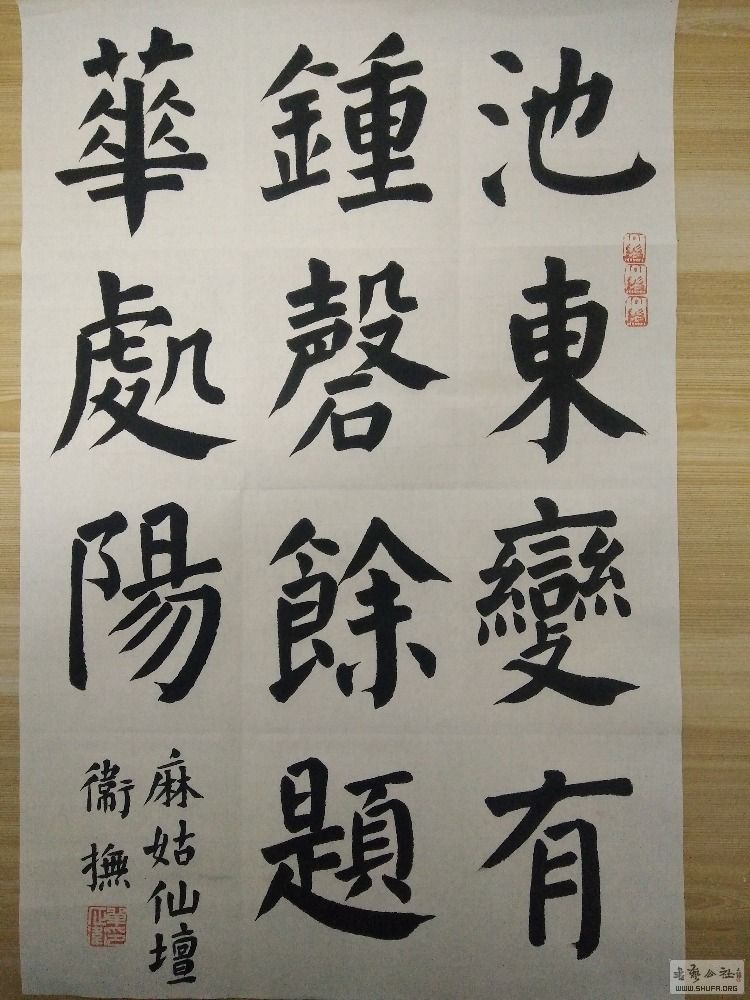 池東變有
鍾磬餘題
華處陽
麻姑仙壇
衛撫
WWW.SHUFA.ORG